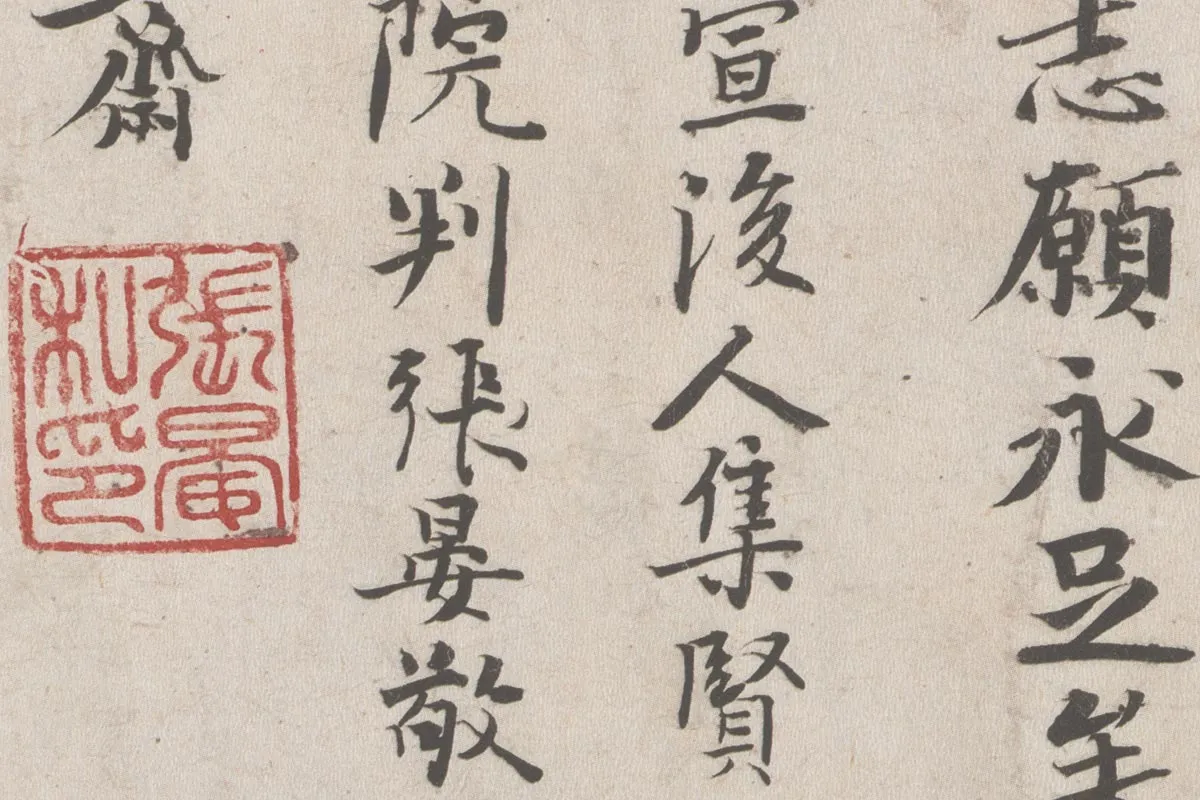 志願永足矣
宣後人集賢
院判張晏敬
齋
張晏私印